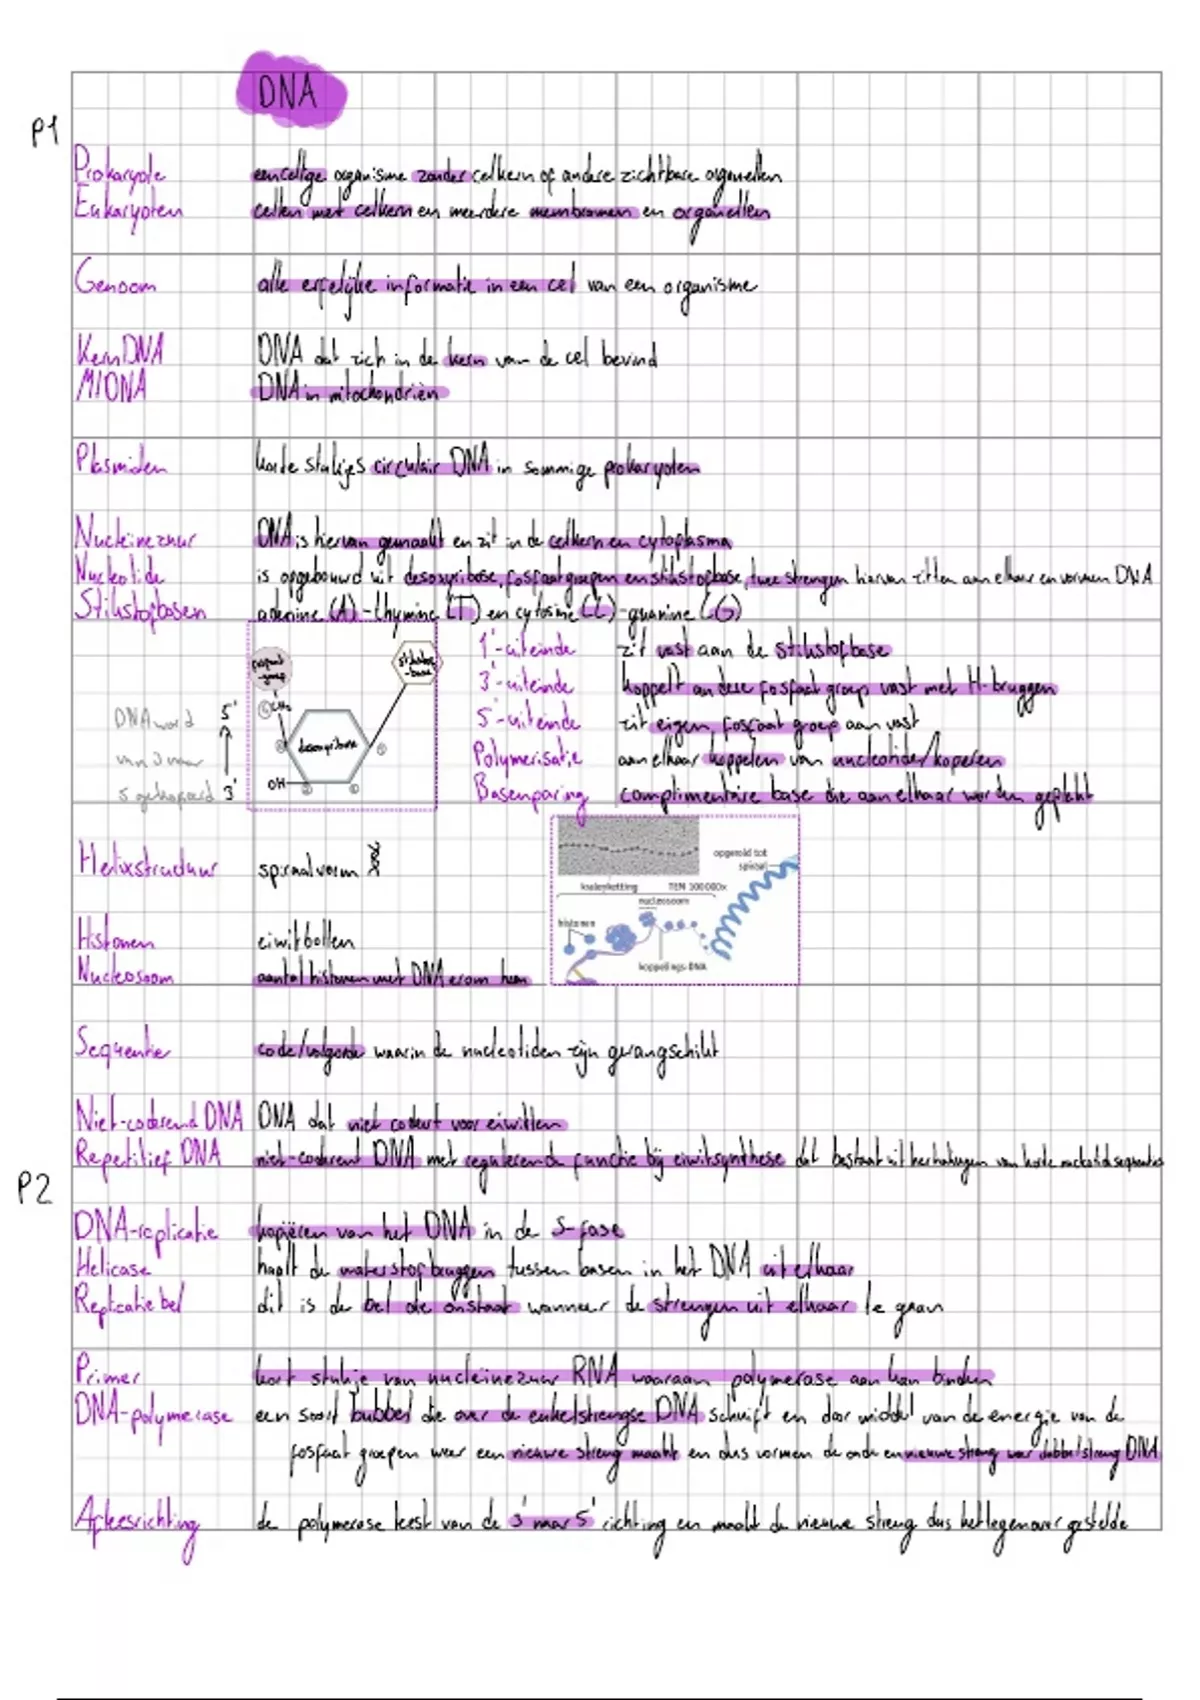 DNA
P1
Prokaryote eencellige organisme zonder celkern of andere zichtbare organellen
Eukaryoten cellen met celkern en meerdere membramen en organellen
Genoom alle erfelijke informatie in een cel van een organisme
KernDNA DNA dat zich in de kern van de cel bevind
MtDNA DNA in mitochondriën
Plasmiden korte stukjes circulair DNA in sommige prokaryoten
Nucleinezuur DNA is hiervan gemaakt en zit in de celkern en cytoplasma
Nucleotide is opgebouwd uit desoxyribose, fosfaatgroepen en stikstofbase, twee strengen hiervan zitten aan elkaar en vormen DNA
Stikstofbasen adenine (A) - thymine (T) en cytosine (C) - guanine (G)
fosfaat-groep
stikstof-base
1'-uiteinde zit vast aan de stikstofbase
3'-uiteinde koppelt andere fosfaat groep vast met H-bruggen
5'-uiteinde zit eigen fosfaat groep aan vast
Polymerisatie aan elkaar koppelen van nucleotiden/kopelen
Basenparing complimentaire base die aan elkaar worden geplakt
DNA word 5'
van 3 naar
5 gekopieerd 3'
⑤CH₂
desoxyribose
④ ①
OH ③ ②
Helixstructuur spiraalvorm
opgerold tot
spiraal
kralenketting TEM 100000x
nucleosoom
histonen
koppelings-DNA
Histonen eiwitbollen
Nucleosoom aantal histonen met DNA erom heen
Sequentie code/volgorde waarin de nucleotiden zijn gerangschikt
Niet-coderend DNA DNA dat niet codeert voor eiwitten
Repetitief DNA niet-coderent DNA met regulerende functie bij eiwitsynthese dat bestaat uit herhalingen van korte nucleotidesequenties
P2
DNA-replicatie kopiëren van het DNA in de S-fase
Helicase haalt de waterstofbruggen tussen basen in het DNA uit elkaar
Replicatiebel dit is de bel die onstaat wanneer de strengen uit elkaar te gaan
Primer kort stukje van nucleinezuur RNA waaraan polymerase aan kan binden
DNA-polymerase een soort bubbel die over de enkelstrengse DNA schuift en door middel van de energie van de
fosfaat groepen weer een nieuwe streng maakt en dus vormen de oude en nieuwe streng weer dubbelstreng DNA
Afleesrichting de polymerase leest van de 3' naar 5' richting en maakt de nieuwe streng dus het tegenover gestelde